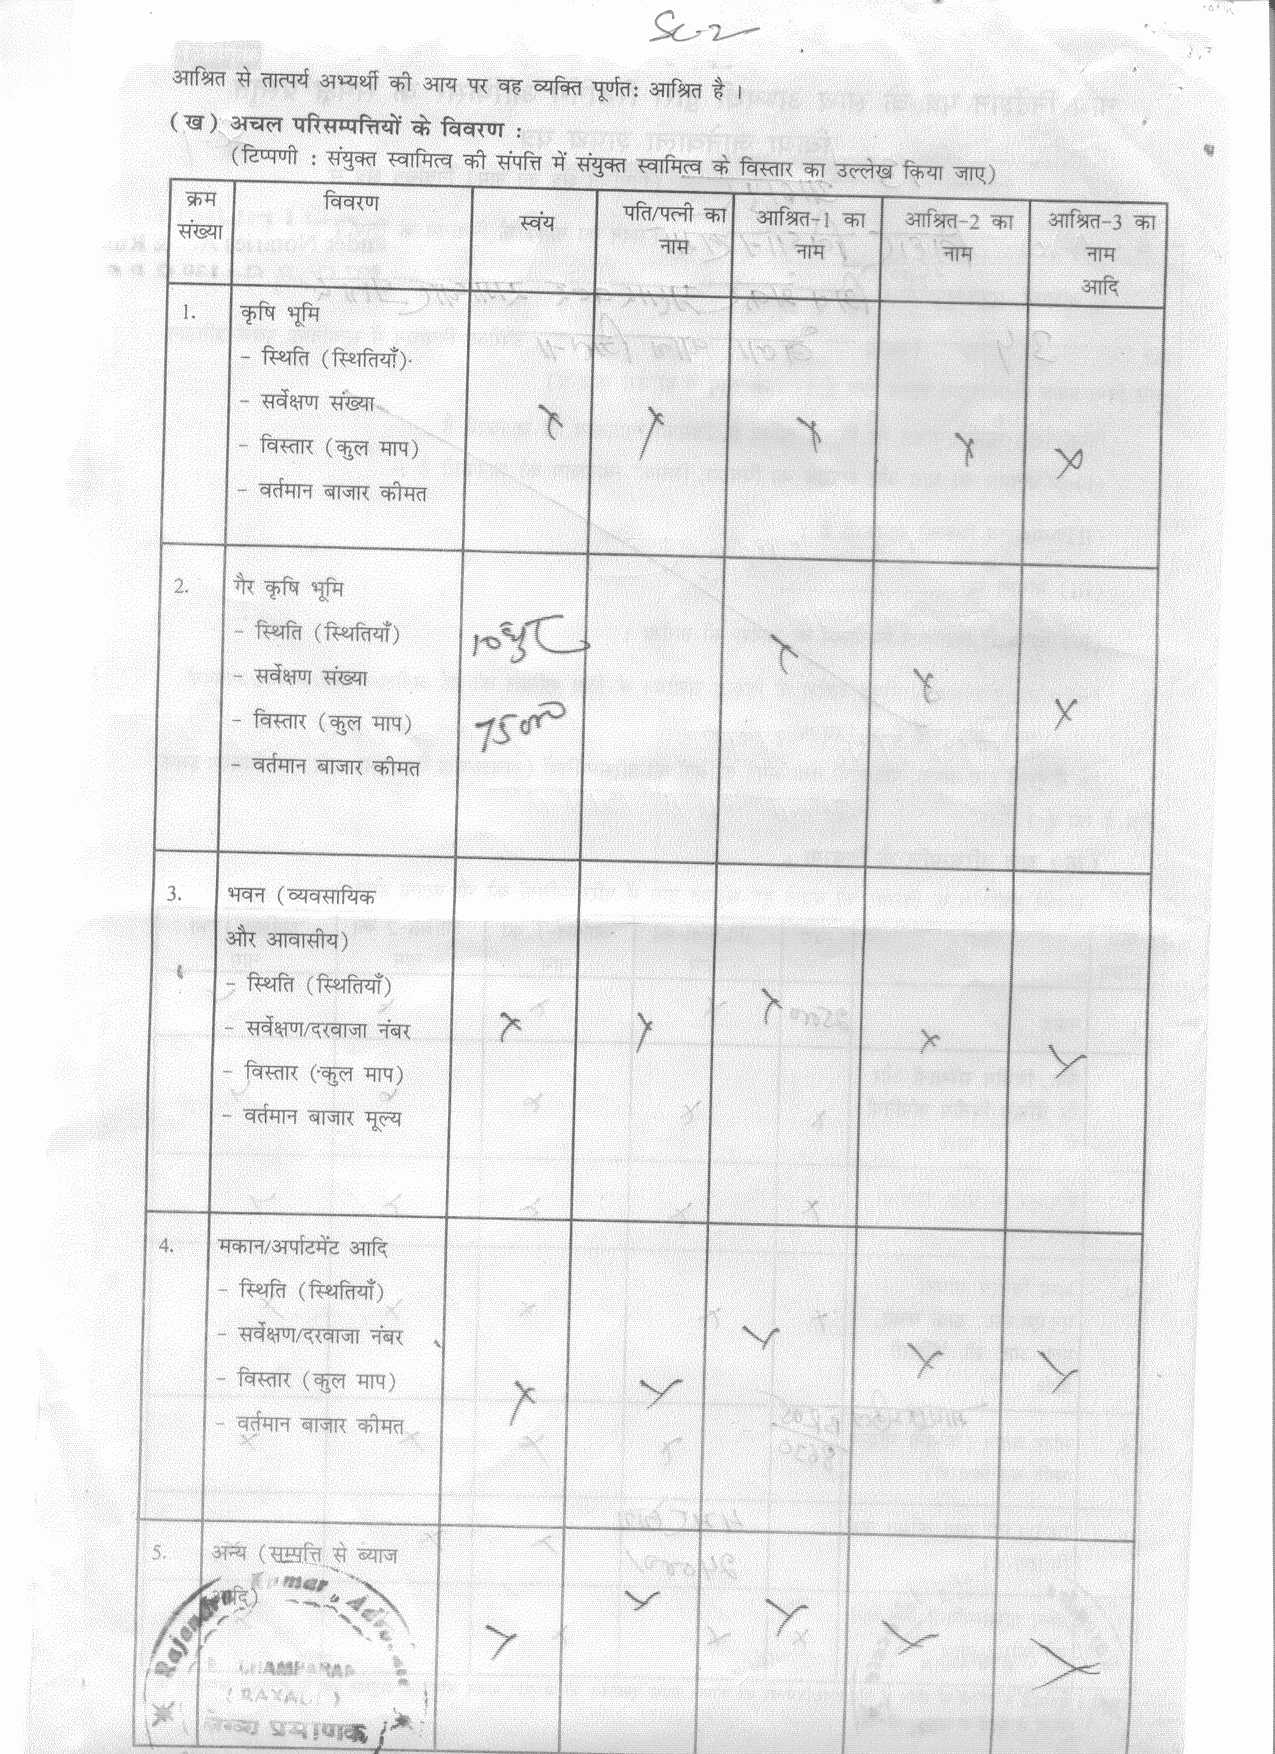 आश्रित से तात्पर्य अभ्यर्थी की आय पर वह व्यक्ति पूर्णतः आश्रित है ।
(ख) अचल परिसम्पत्तियों के विवरण :
(टिप्पणी : संयुक्त स्वामित्व की संपत्ति में संयुक्त स्वामित्व के विस्तार का उल्लेख किया जाए)
क्रम संख्या
विवरण
स्वंय
पति/पत्नी का नाम
आश्रित-1 का नाम
आश्रित-2 का नाम
आश्रित-3 का नाम आदि
1. कृषि भूमि
- स्थिति (स्थितियाँ)
- सर्वेक्षण संख्या
- विस्तार (कुल माप)
- वर्तमान बाजार कीमत
x x x x x
2. गैर कृषि भूमि
- स्थिति (स्थितियाँ)
- सर्वेक्षण संख्या
- विस्तार (कुल माप)
- वर्तमान बाजार कीमत
10 धुर
75000
x x x
3. भवन (व्यवसायिक
और आवासीय)
- स्थिति (स्थितियाँ)
- सर्वेक्षण/दरवाजा नंबर
- विस्तार (कुल माप)
- वर्तमान बाजार मूल्य
x x x x x
4. मकान/अर्पाटमेंट आदि
- स्थिति (स्थितियाँ)
- सर्वेक्षण/दरवाजा नंबर
- विस्तार (कुल माप)
- वर्तमान बाजार कीमत
x x x x x
5. अन्य (सम्पत्ति से ब्याज
आदि)
x x x x x
Rajendra Kumar, Advocate
CHAMPARAN